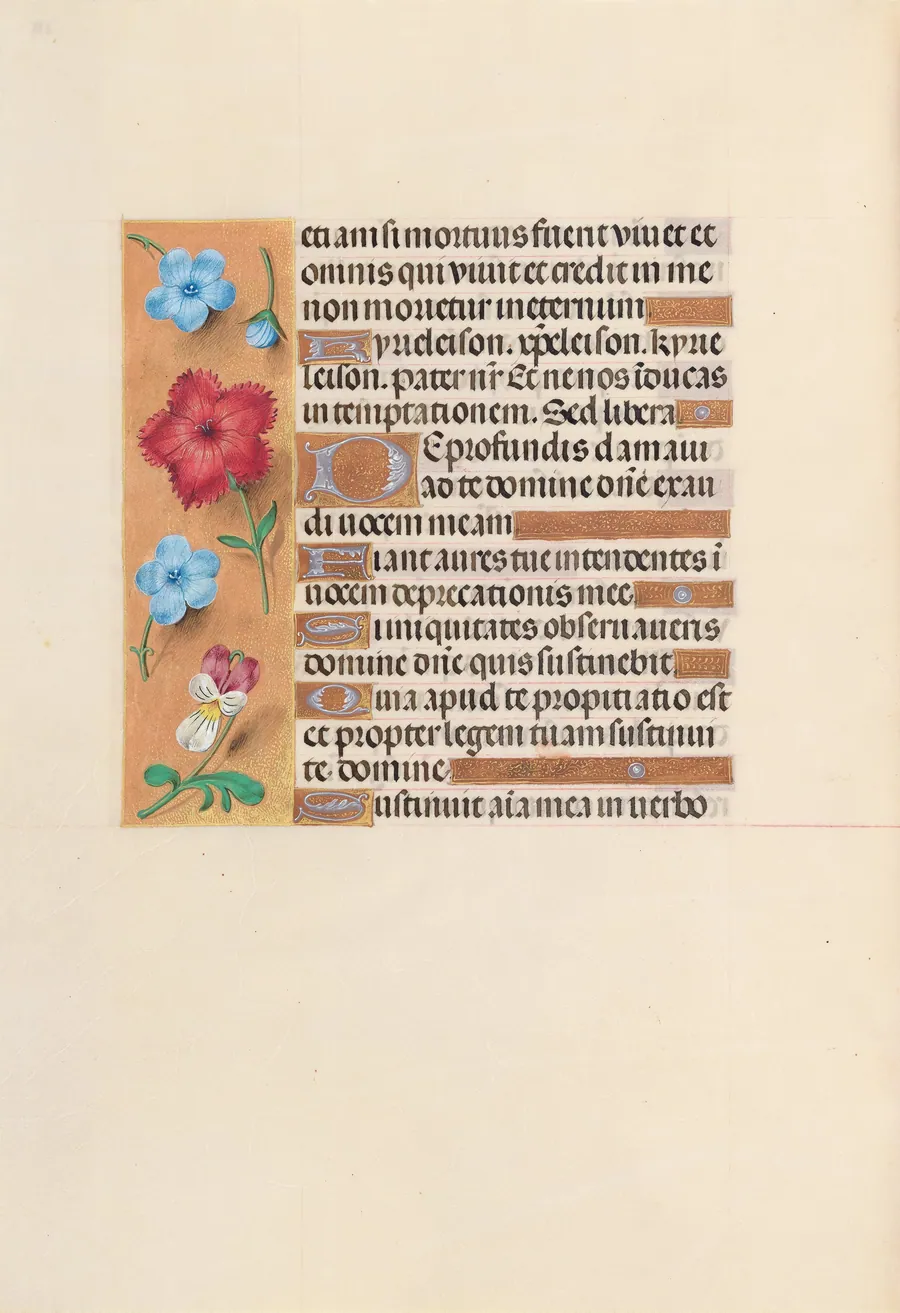 etiam si mortuus fuerit viuet et et
omnis qui viuit et credit in me
non morietur in eternum
Kyrieleison. xp̄eleison. kyrie
leison. pater nr̄ Et ne nos īducas
in temptationem. Sed libera
DE profundis clamaui
ad te domine dn̄e exau
di uocem meam
Fiant aures tue intendentes ī
uocem deprecationis mee
Si iniquitates obseruaueris
domine dn̄e quis sustinebit
Quia apud te propitiatio est
et propter legem tuam sustinui
te domine
Sustinuit aīa mea in uerbo